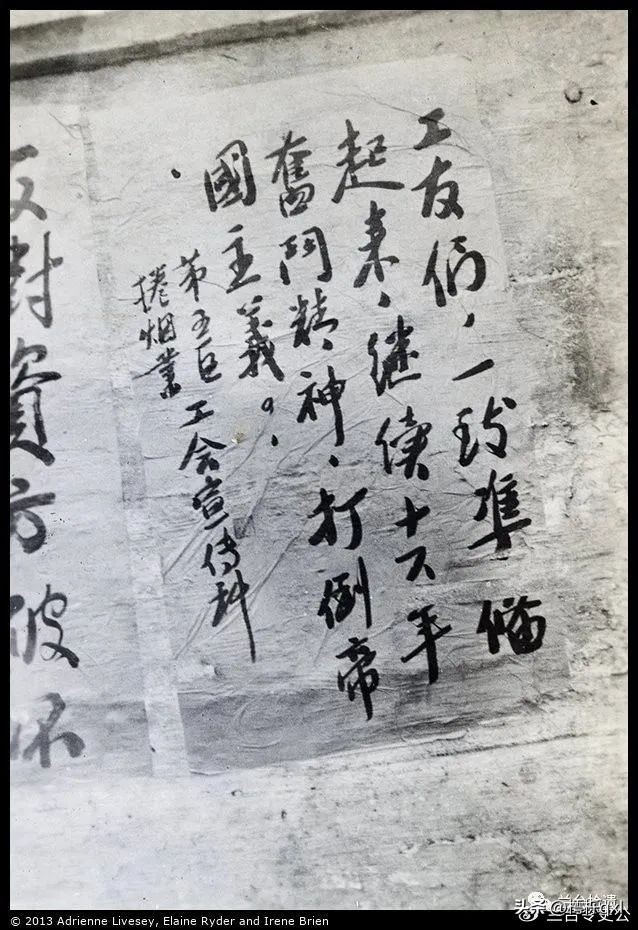 工友们，一致準備
起来，继續十六年
奮鬥精神，打倒帝
國主義。
第五区
捲烟業
工会宣傳科
反對資方破坏
© 2013 Adrienne Livesey, Elaine Ryder and Irene Brien